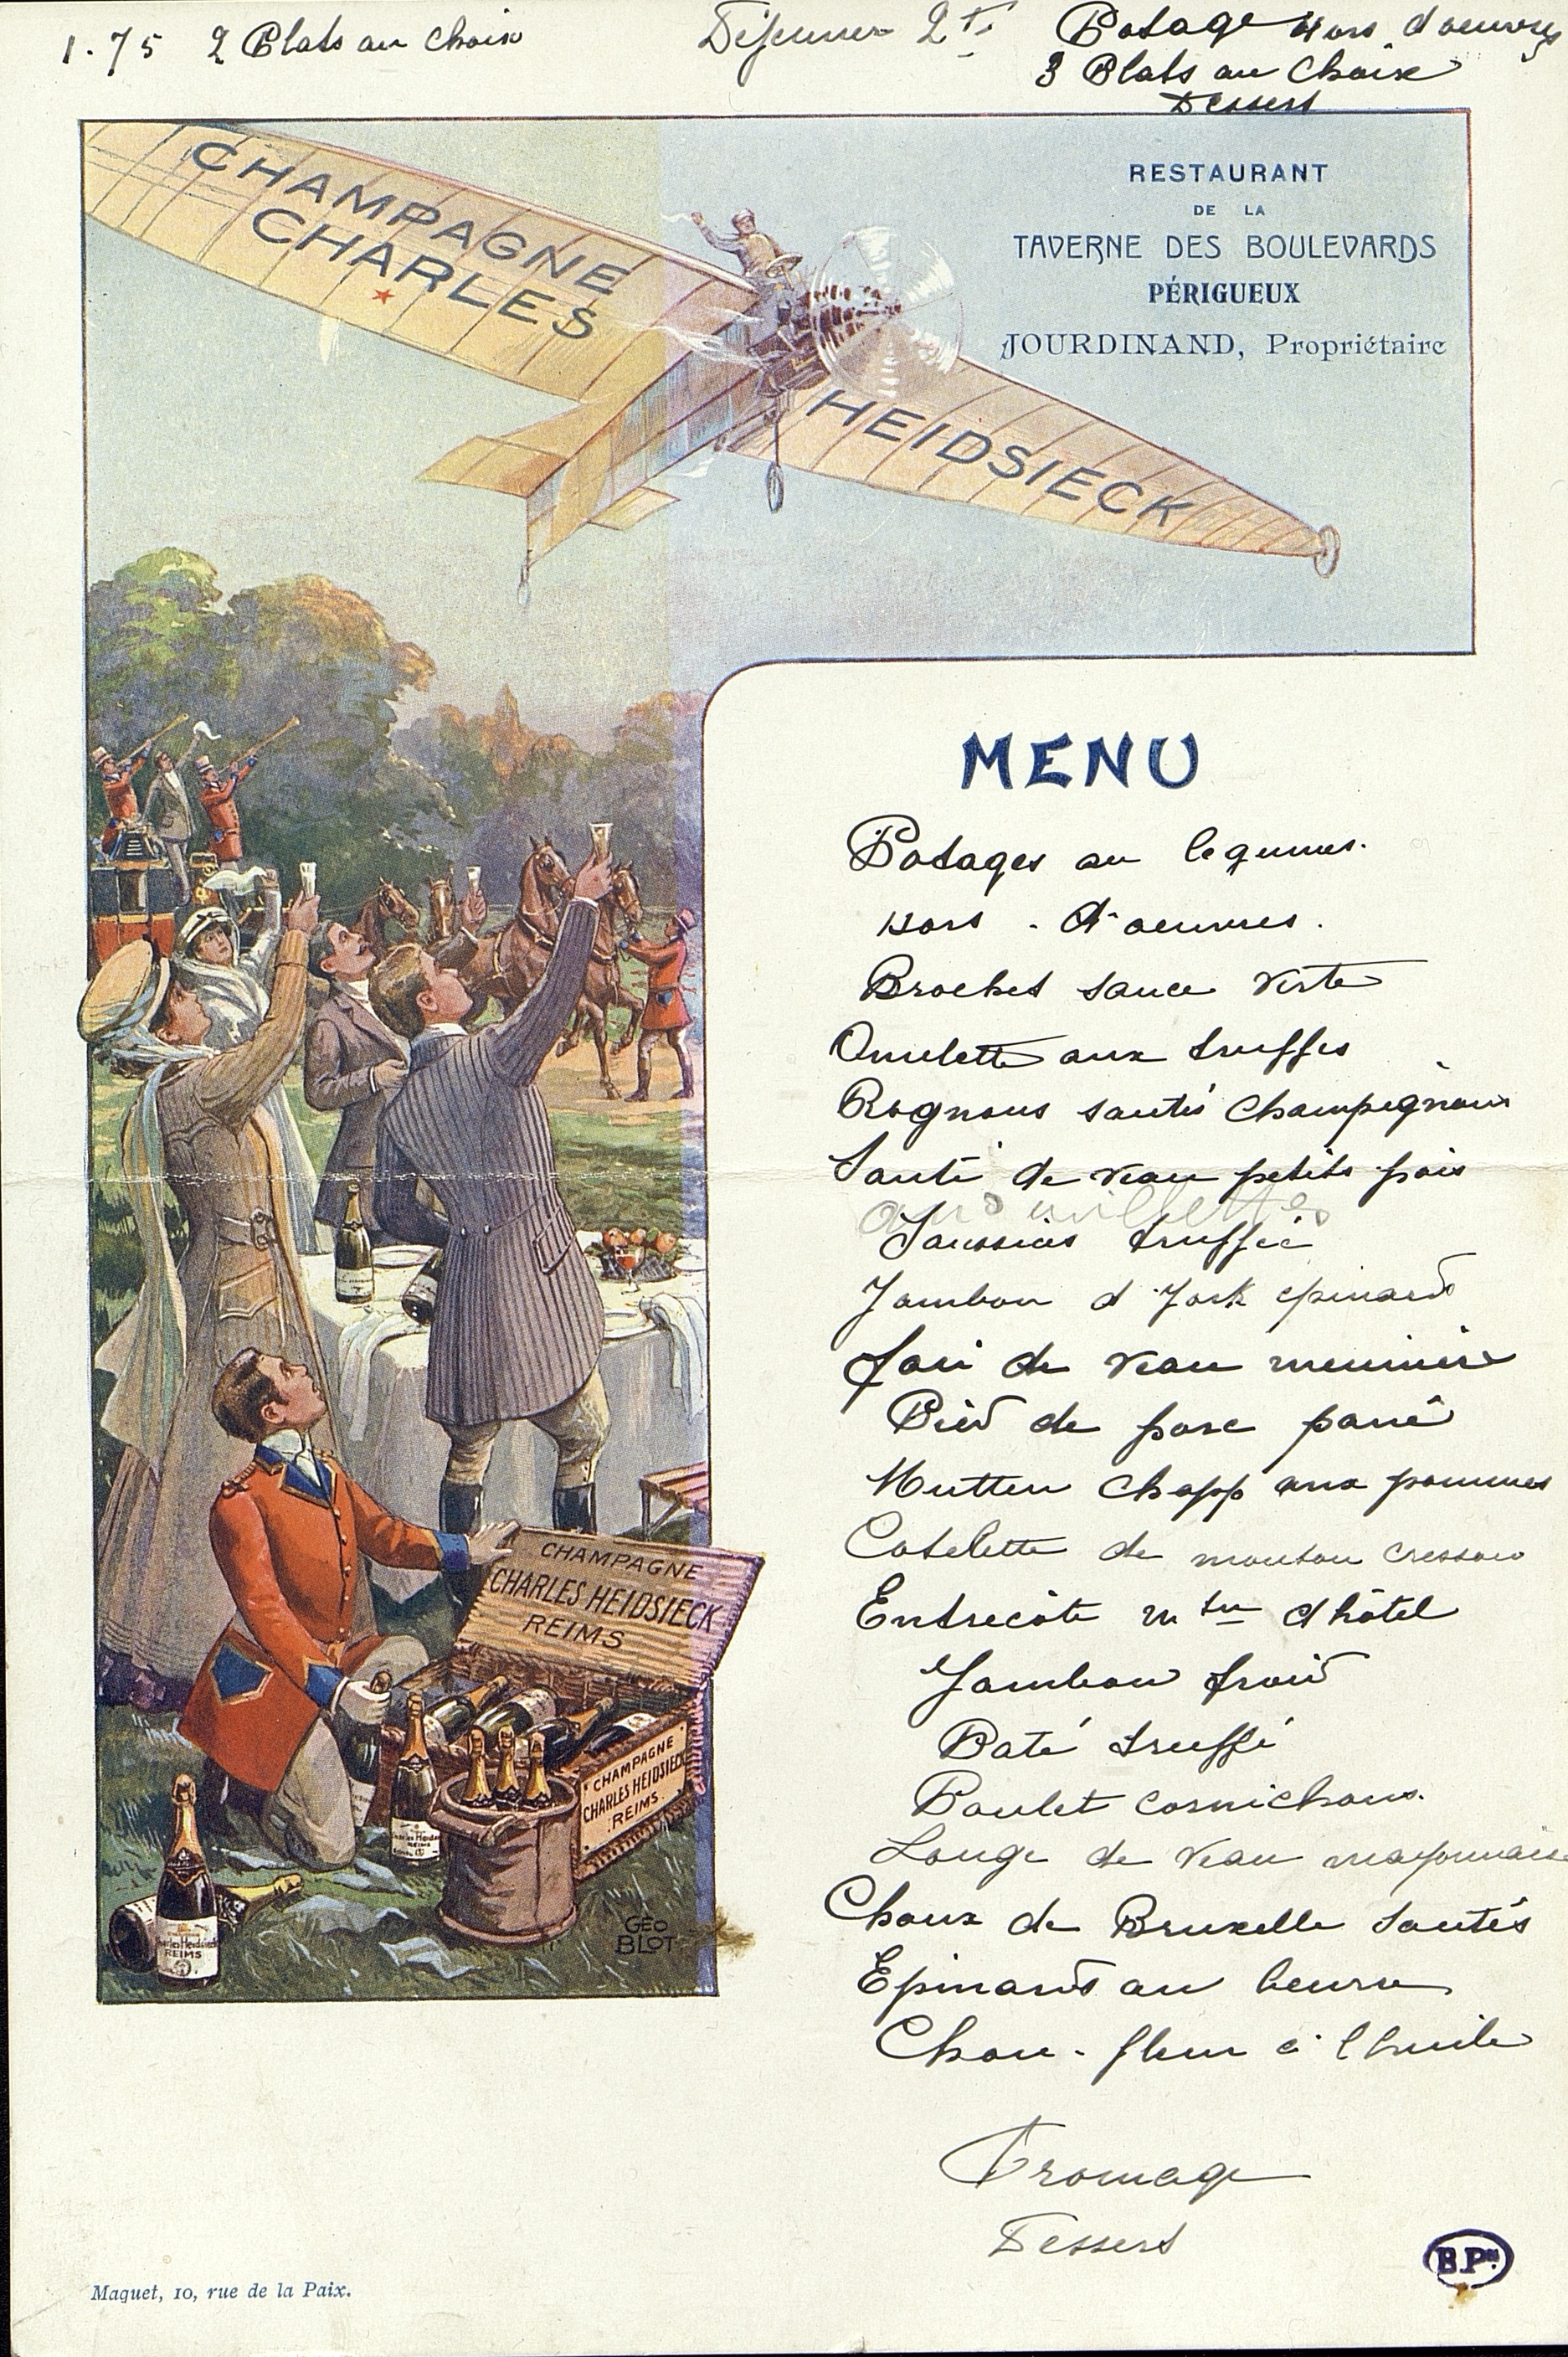 1.75 2 Plats au choix
Déjeuner 2f Potage Hors d'oeuvres
3 Plats au Choix
Dessert
CHAMPAGNE
CHARLES
HEIDSIECK
RESTAURANT
DE LA
TAVERNE DES BOULEVARDS
PÉRIGUEUX
JOURDINAND, Propriétaire
MENU
Potages au legumes.
Hors - d'oeuvres.
Brochet sauce verte
Omelette aux truffes
Rognons sautés Champignons
Sauté de veau petits pois
andouillettes
Saussies truffée
Jambon d'York epinards
Foie de veau meunière
Pied de porc pané
Mutton Chopp aux pommes
Cotelette de mouton cresson
Entrecôte mtre d'hôtel
Jambon froid
Paté truffé
Poulet cornichons.
Longe de veau mayonnaise
Choux de Bruxelle sautés
Epinards au beurre
Chou-fleur à l'huile
Fromage
Dessert
CHAMPAGNE
CHARLES HEIDSIECK
REIMS
CHAMPAGNE
CHARLES HEIDSIECK
REIMS.
Charles Heidsieck
REIMS
Charles Heidsieck
REIMS
GÉO
BLOT
Maquet, 10, rue de la Paix.
B.Px.